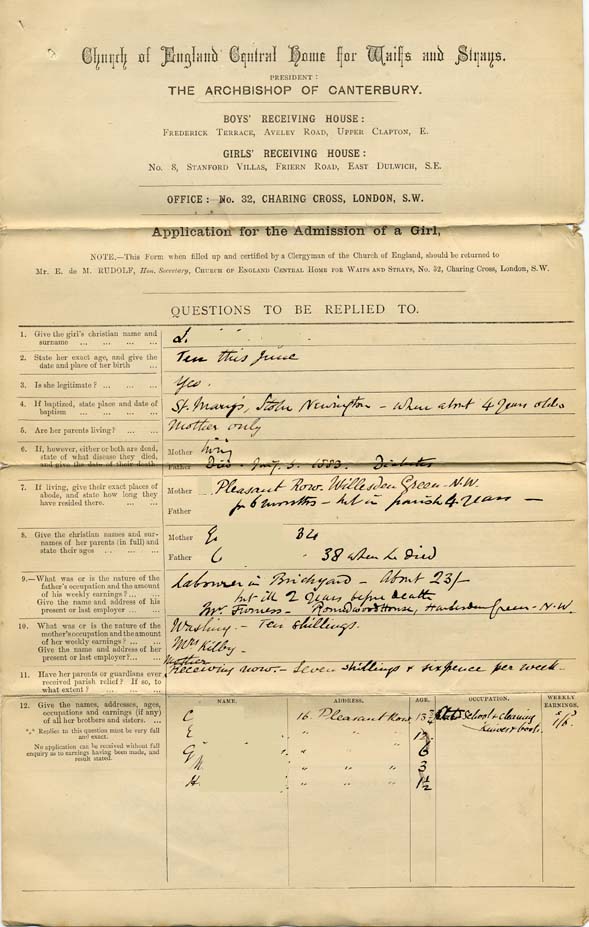 Church of England Central Home for Waifs and Strays.
PRESIDENT:
THE ARCHBISHOP OF CANTERBURY.
BOYS' RECEIVING HOUSE:
FREDERICK TERRACE, AVELEY ROAD, UPPER CLAPTON, E.
GIRLS' RECEIVING HOUSE:
No. 8, STANFORD VILLAS, FRIERN ROAD, EAST DULWICH, S.E.
OFFICE: No. 32, CHARING CROSS, LONDON, S.W.
Application for the Admission of a Girl,
NOTE.—This Form when filled up and certified by a Clergyman of the Church of England, should be returned to
Mr. E. de M. RUDOLF, Hon. Secretary, CHURCH OF ENGLAND CENTRAL HOME FOR WAIFS AND STRAYS, No. 32, Charing Cross, London, S.W.
QUESTIONS TO BE REPLIED TO.
1. Give the girl's christian name and
surname ... ... ... ...
2. State her exact age, and give the
date and place of her birth ...
Ten this June
3. Is she legitimate? ... ... ...
Yes.
4. If baptized, state place and date of
baptism ... ... ... ...
St. Mary's, Stoke Newington - when about 4 years old
5. Are her parents living? ... ...
Mother only
6. If, however, either or both are dead,
state of what disease they died,
and give the date of their death
Mother living
Father Died - 5. 1883. Diabetes
7. If living, give their exact places of
abode, and state how long they
have resided there. ... ...
Mother Pleasant Row. Willesden Green - N.W.
Father for 6 months - but in parish 4 years -
8. Give the christian names and sur-
names of her parents (in full) and
state their ages
Mother E 34
Father C 38 when he died
9.—What was or is the nature of the
father's occupation and the amount
of his weekly earnings? ... ...
Give the name and address of his
present or last employer ... ...
Labourer in Brickyard - About 23/-
but ill 2 years before death
Mr. Furness - Roundwood House, Harlesden Green - N.W.
10. What was or is the nature of the
mother's occupation and the amount
of her weekly earnings? ... ...
Give the name and address of her
present or last employer?... ...
Washing - Ten shillings.
Mrs Kilby -
11. Have her parents or guardians ever
received parish relief? If so, to
what extent? ... ... ...
Mother
Receiving now. - Seven shillings & sixpence per week -
12. Give the names, addresses, ages,
occupations and earnings (if any)
of all her brothers and sisters. ...
*** Replies to this question must be very full
and exact.
No application can be received without full
enquiry as to earnings having been made, and
result stated.
NAME. ADDRESS. AGE. OCCUPATION. WEEKLY EARNINGS.
C 16. Pleasant Row School & cleaning
knives & boots.
E " " "
G " 6
" " " 3
H " " " 1½